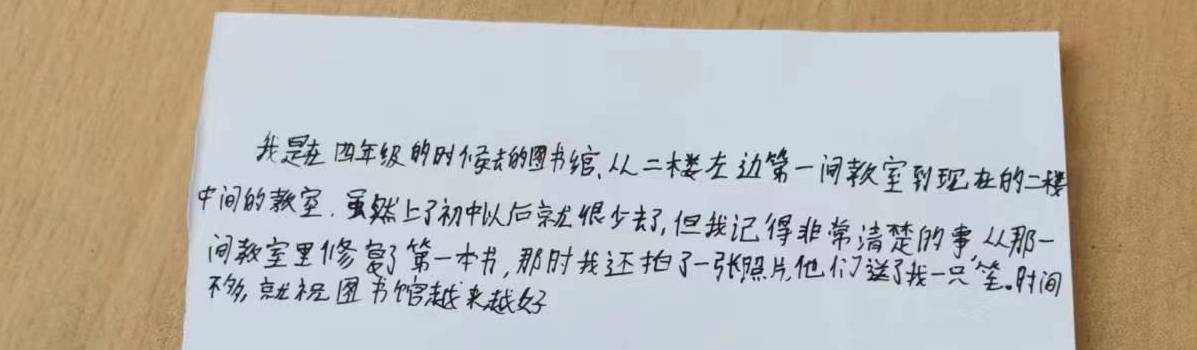 我是在四年级的时候去的图书馆、从二楼左边第一间教室到现在的二楼
中间的教室．虽然上了初中以后就很少去了,但我记得非常清楚的事,从那一
间教室里修复了第一本书,那时我还拍了一张照片,他们送了我一只笔。时间
不多,就祝图书馆越来越好